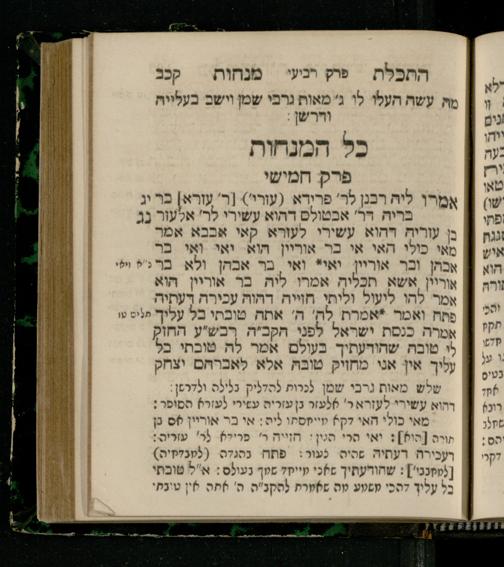 התכלת פרק רביעי מנחות קכב
מה עשה העלו לו ג׳ מאות גרבי שמן וישב בעלייה
ודרשן :
כל המנחות
פרק חמישי
אמרו ליה רבנן לר׳ פרידא (עזרי׳) [ר׳ עזרא] בר יג
בריה דר׳ אבטולם דהוא עשירי לר׳ אלעזר נג
בן עזריה דהוא עשירי לעזרא קאי אבבא אמר
מאי כולי האי אי בר אוריין הוא יאי ואי בר
אבהן ובר אוריין יאי* ואי בר אבהן ולא בר נ״א ויאי
אוריין אשא תכליה אמרו ליה בר אוריין הוא
אמר להו ליעול וליתי חזייה דהוה עכירה דעתיה
פתח ואמר *אמרת לה׳ ה׳ אתה טובתי בל עליך תלים טז
אמרה כנסת ישראל לפני הקב״ה רבש״ע החזק
לי טובה שהודעתיך בעולם אמר לה טובתי בל
עליך אין אני מחזיק טובה אלא לאברהם יצחק
שלש מאות גרבי שמן לכרות להדליק בלילה ולדרשן:
דהוא עשירי לעזרא ר׳ אלעזר בן עזריה עשירי לעזרא הסופר:
מאי כולי האי דקא מייחסתו ליה: אי בר אוריין אם בן
תורה [הוא]: יאי הרי הגין: חזייה ר׳ פרידא לר׳ עזריה:
דעכירה דעתיה שהיה כעור: פתח בהגדה
: שהודעתיך שאני מייחד שמך בעולם: א״ל טובתי
בל עליך דהכי משמע מה שאמרת להקב״ה ה׳ אתה אין טובתי